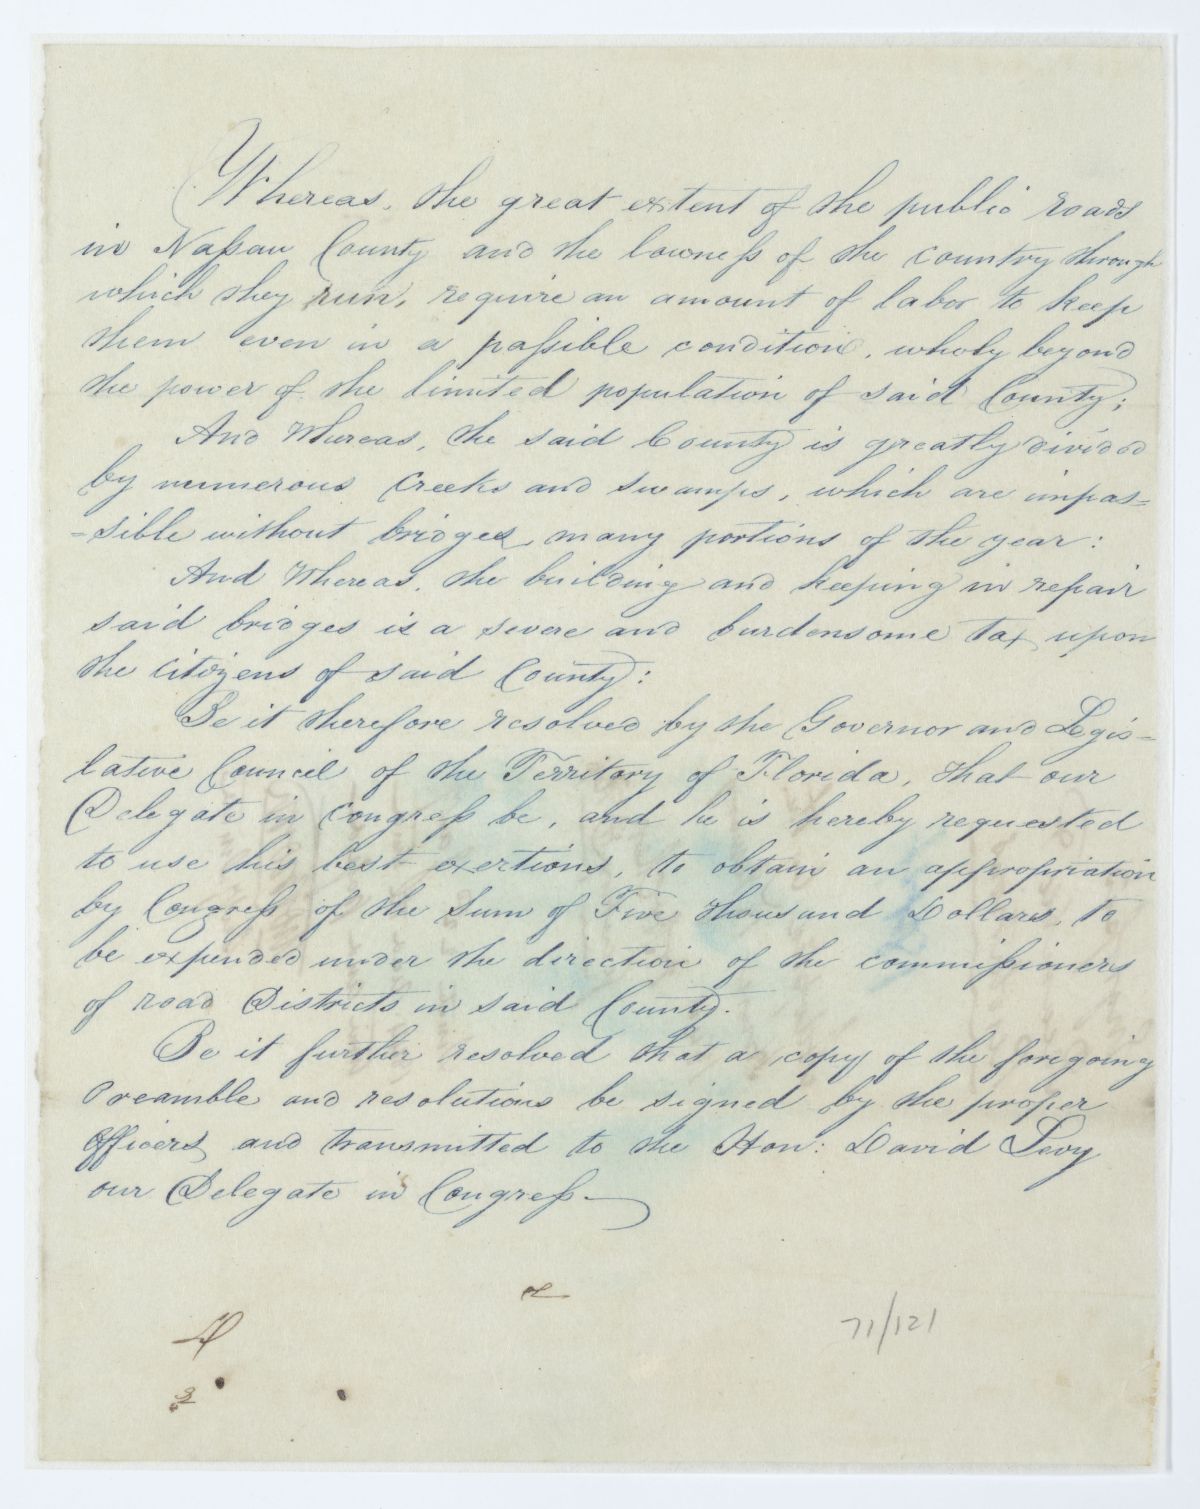 Whereas, the great extent of the public roads
in Nassau County and the lowness of the country through
which they run, require an amount of labor to keep
them even in a passible condition, wholy beyond
the power of the limited population of said County;
And Whereas, the said County is greatly divided
by numerous Creeks and swamps, which are impas=
=sible without bridges, many portions of the year:
And Whereas, the building and keeping in repair
said bridges is a severe and burdensome tax upon
the citizens of said County:
Be it therefore resolved by the Governor and Legis=
lative Council of the Territory of Florida, that our
Delegate in Congress be, and he is hereby requested
to use his best exertions, to obtain an appropriation
by Congress of the sum of Five thousand Dollars, to
be expended under the direction of the commissioners
of road Districts in said County.
Be it further resolved that a copy of the foregoing
Preamble and resolutions be signed by the proper
Officers, and transmitted to the Hon: David Levy
our Delegate in Congress.
71/121